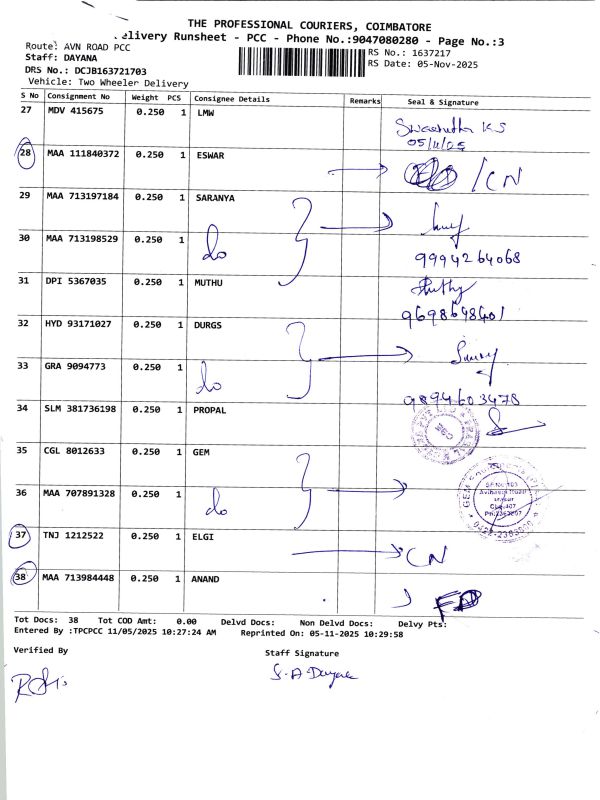 THE PROFESSIONAL COURIERS, COIMBATORE
elivery Runsheet - PCC - Phone No.:9047080280 - Page No.:3
Route: AVN ROAD PCC
RS No.: 1637217
Staff: DAYANA
RS Date: 05-Nov-2025
DRS No.: DCJB163721703
Vehicle: Two Wheeler Delivery
S No Consignment No Weight PCS Consignee Details Remarks Seal & Signature
27 MDV 415675 0.250 1 LMW
05/11/25
28 MAA 111840372 0.250 1 ESWAR
/CN
29 MAA 713197184 0.250 1 SARANYA
30 MAA 713198529 0.250 1 do
9994264068
31 DPI 5367035 0.250 1 MUTHU
Muthu
9698648401
32 HYD 93171027 0.250 1 DURGS
33 GRA 9094773 0.250 1 do
9894603478
34 SLM 381736198 0.250 1 PROPAL
35 CGL 8012633 0.250 1 GEM
36 MAA 707891328 0.250 1 do
37 TNJ 1212522 0.250 1 ELGI CN
38 MAA 713984448 0.250 1 ANAND
Tot Docs: 38 Tot COD Amt: 0.00 Delvd Docs: Non Delvd Docs: Delvy Pts:
Entered By :TPCPCC 11/05/2025 10:27:24 AM Reprinted On: 05-11-2025 10:29:58
Verified By Staff Signature
S. A. Dayana